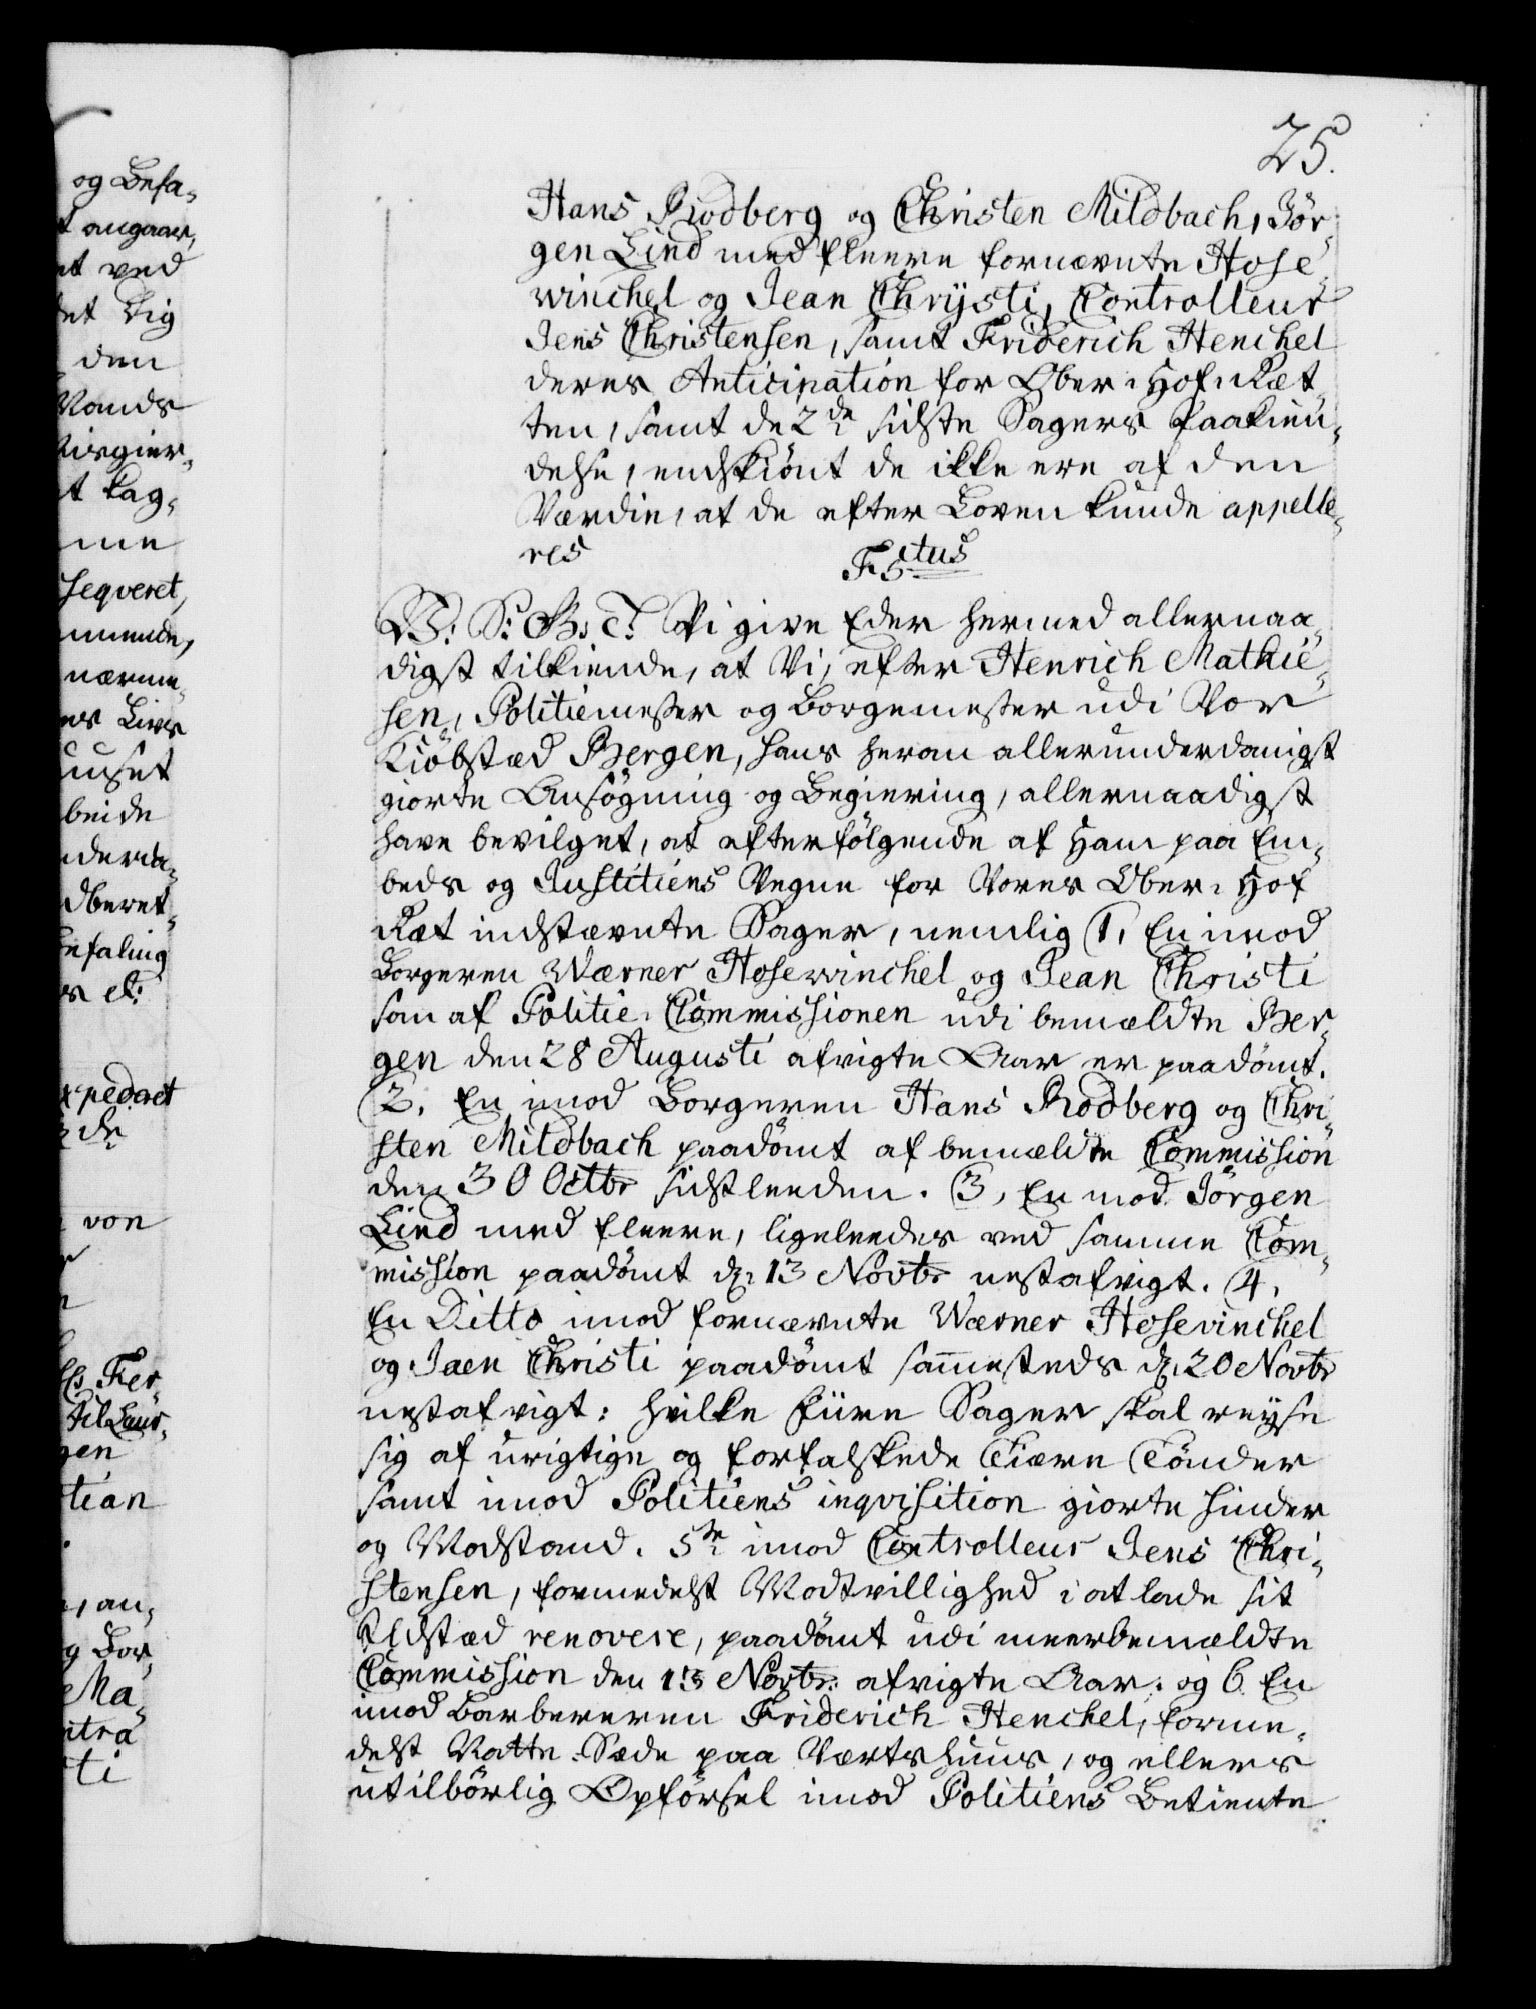 25.
og Befa,
t angaar,
et ved
det Dig
den
Vands
t lag,
me
seqveret,
nærme,
es Livs
huuset
beide
dberet,
befaling
xpederet
von
Fer,
til Laur,
gen
tian
, an,
g Bor,
Ma,
ntra
ti
Hans Rodberg og Christen Mildbach, Jör,
gen Lind med fleere fornævnte Hose,
winchel og Jean Chrysti, Controlleur
Jens Christensen, samt Friderich Henchel
deres Anticination for Ober-Hof-Ræt
ten, samt de 2de sidste Sagers Paakien,
delse, endskiönt de ikke ere af den
Værdie, at de efter Loven kunde appelle,
res
F5tus
V: S: G: T: Vi give Eder hermed allernaa,
digst tilkiende, at Vi, efter Henrich Mathie,
sen, Politiemester og Borgemester udi Vor
Kiöbstæd Bergen, hans herom allerunderdanigst
giorte Ansögning og Begiering, allernaadigst
have bevilget, at efterfölgende af Ham paa Em,
beds og Justitiens Vegne for Vores Ober-Hof
Ræt indstævnte Sager, nemlig (1, En imod
Borgeren Wærner Hosewinchel og Jean Christi
som af Politie-Commissionen udi bemældte Ber,
gen den 28 Augusti afvigte Aar er paadömt.
(2. En imod Borgeren Hans Rodberg og Chri,
sten Mildbach paadömt af bemældte Commission
den 30 Octbr sidstleeden. (3, En mod Jörgen
Lind med fleere, ligeleedes ved samme Com,
mission paadömt d: 13 Novbr nestafvigt. (4,
En Ditto imod fornævnte Wærner Hosevinchel
og Jaen Christi paadömt sam̄esteds d: 20 Novbr
nestafvigt: hvilke fiire Sager skal reyse
sig af urigtige og forfalskede Tiære Tönder
samt imod Politiens inqvisition giorte hinder
og Modstand. 5te imod Controlleur Jens Chri,
stensen, formedelst Modtvillighed i at lade sit
Ildstæd renovere, paadömt udi meerbemældte
Commission den 13 Novbr: afvigte Aar. og 6 En
imod Barbereren Friderich Henchel, forme,
delst Natte-Sæde paa Værtshuus, og ellers
utilbörlig Opförsel imod Politiens Betiente